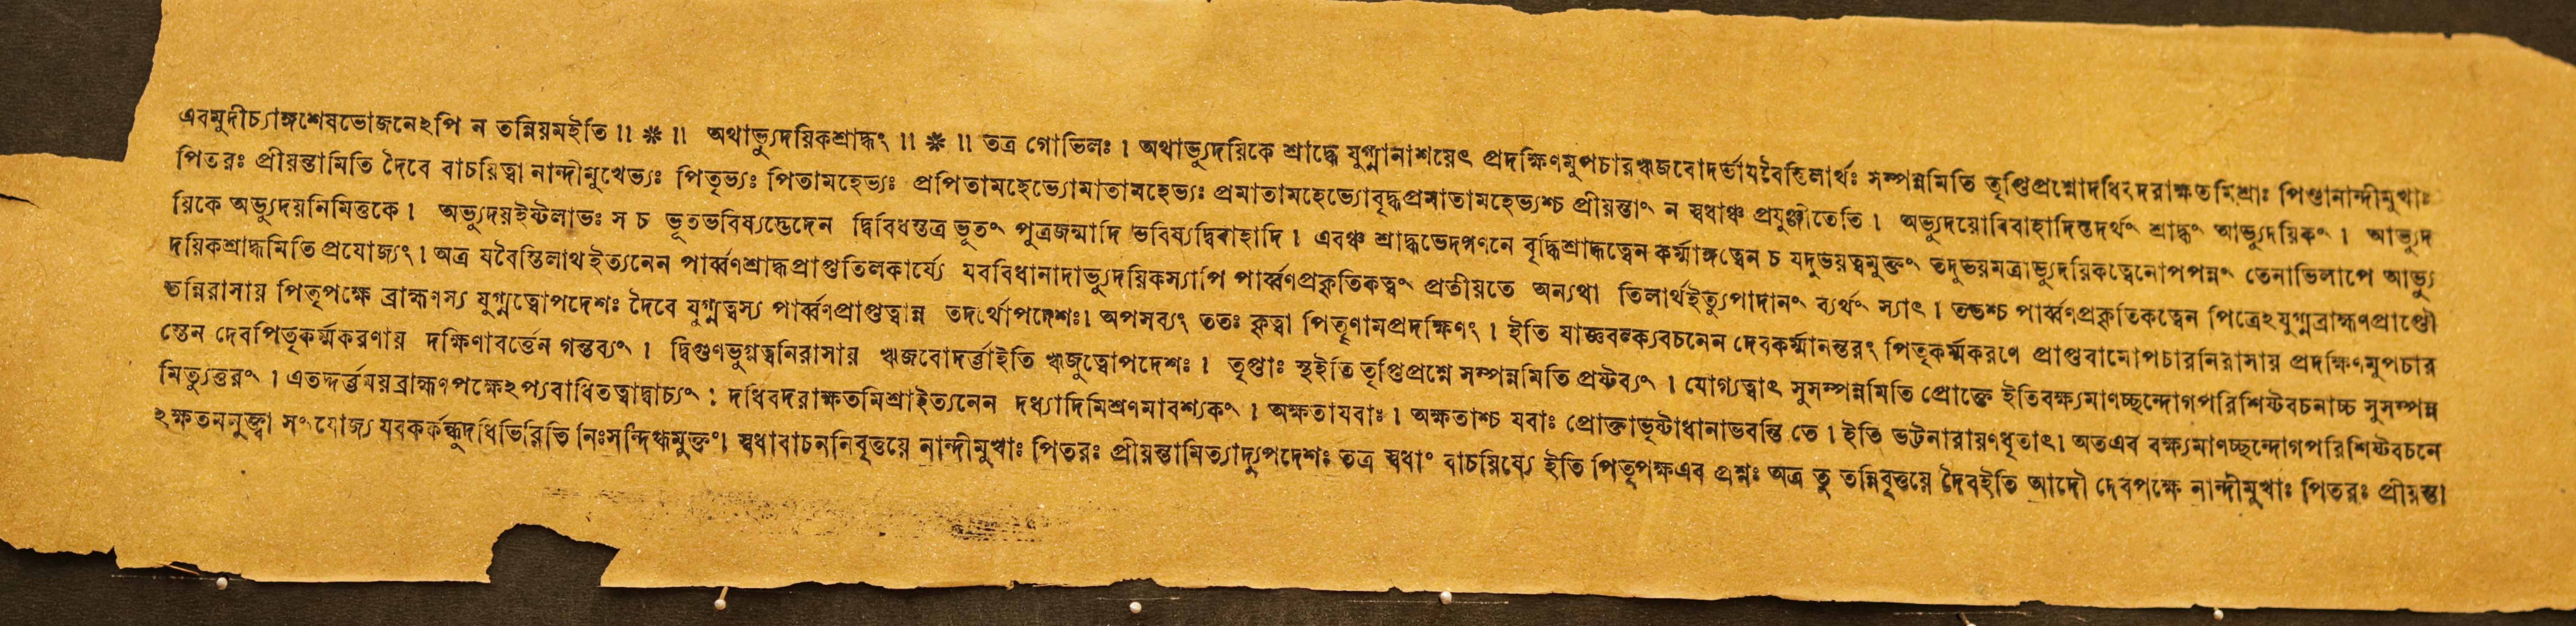 এবমুদীচ্যাঙ্গশেষভোজনেঽপি ন তন্নিয়মইতি ॥ * ॥ অথাভ্যুদয়িকশ্রাদ্ধং ॥ * ॥ তত্র গোভিলঃ । অথাভ্যুদয়িকে শ্রাদ্ধে যুগ্মানাশয়েৎ প্রদক্ষিণমুপচারঋজবোদর্ভাযবৈস্তিলার্থঃ সম্পন্নমিতি তৃপ্তিপ্রশ্নোদধিবদরাক্ষতমিশ্রাঃ পিণ্ডানান্দীমুখাঃ
পিতরঃ প্রীয়ন্তামিতি দৈবে বাচয়িত্বা নান্দীমুখেভ্যঃ পিতৃভ্যঃ পিতামহেভ্যঃ প্রপিতামহেভ্যোমাতামহেভ্যঃ প্রমাতামহেভ্যোবৃদ্ধপ্রমাতামহেভ্যশ্চ প্রীয়ন্তাং ন স্বধাঞ্চ প্রযুঞ্জীতেতি । অভ্যুদয়োবিবাহাদিস্তদর্থং শ্রাদ্ধং আভ্যুদয়িকং । আভ্যুদ
য়িকে অভ্যুদয়নিমিত্তকে । অভ্যুদয়ইষ্টলাভঃ স চ ভূতভবিষ্যদ্ভেদেন দ্বিবিধস্তত্র ভূতং পুত্রজন্মাদি ভবিষ্যদ্বিবাহাদি । এবঞ্চ শ্রাদ্ধভেদগণনে বৃদ্ধিশ্রাদ্ধত্বেন কর্ম্মাঙ্গত্বেন চ যদুভয়ত্বমুক্তং তদুভয়মত্রাভ্যুদয়িকত্বেনোপপন্নং তেনাভিলাপে আভ্যু
দয়িকশ্রাদ্ধমিতি প্রযোজ্যং । অত্র যবৈস্তিলাথইত্যনেন পার্ব্বণশ্রাদ্ধপ্রাপ্ততিলকার্য্যে যববিধানাদাভ্যুদয়িকস্যাপি পার্ব্বণপ্রকৃতিকত্বং প্রতীয়তে অন্যথা তিলার্থইত্যুপাদানং ব্যর্থং স্যাৎ । ততশ্চ পার্ব্বণপ্রকৃতিকত্বেন পিত্রেঽযুগ্মব্রাহ্মণপ্রাপ্তৌ
তন্নিরাসায় পিতৃপক্ষে ব্রাহ্মণস্য যুগ্মত্বোপদেশঃ দৈবে যুগ্মত্বস্য পার্ব্বণপ্রাপ্তত্বান্ন তদর্থোপদেশঃ। অপসব্যং ততঃ কৃত্বা পিতৄণামপ্রদক্ষিণং । ইতি যাজ্ঞবল্ক্যবচনেন দেবকর্ম্মানন্তরং পিতৃকর্ম্মকরণে প্রাপ্তবামোপচারনিরাসায় প্রদক্ষিণমুপচার
স্তেন দেবপিতৃকর্ম্মকরণায় দক্ষিণাবর্ত্তেন গন্তব্যং । দ্বিগুণভুগ্নত্বনিরাসায় ঋজবোদর্ভাইতি ঋজুত্বোপদেশঃ । তৃপ্তাঃ স্থইতি তৃপ্তিপ্রশ্নে সম্পন্নমিতি প্রষ্টব্যং । যোগ্যত্বাৎ সুসম্পন্নমিতি প্রোক্তে ইতিবক্ষ্যমাণচ্ছন্দোগপরিশিষ্টবচনাচ্চ সুসম্পন্ন
মিত্যুত্তরং । এতদ্দর্ভময়ব্রাহ্মণপক্ষেঽপ্যবাধিতত্বাদ্বাচ্যং : দধিবদরাক্ষতমিশ্রাইত্যনেন দধ্যাদিমিশ্রণমাবশ্যকং । অক্ষতাযবাঃ । অক্ষতাশ্চ যবাঃ প্রোক্তাভৃষ্টাধানাভবন্তি তে । ইতি ভট্টনারায়ণধৃতাৎ। অতএব বক্ষ্যমাণচ্ছন্দোগপরিশিষ্টবচনে
ঽক্ষতমনুক্ত্বা সংযোজ্য যবকর্কন্ধূদধিভিরিতি নিঃসন্দিগ্ধমুক্তং। স্বধাবাচননিবৃত্তয়ে নান্দীমুখাঃ পিতরঃ প্রীয়ন্তামিত্যাদ্যুপদেশঃ তত্র স্বধাং বাচয়িষ্যে ইতি পিতৃপক্ষএব প্রশ্নঃ অত্র তু তন্নিবৃত্তয়ে দৈবইতি আদৌ দেবপক্ষে নান্দীমুখাঃ পিতরঃ প্রীয়ন্তা